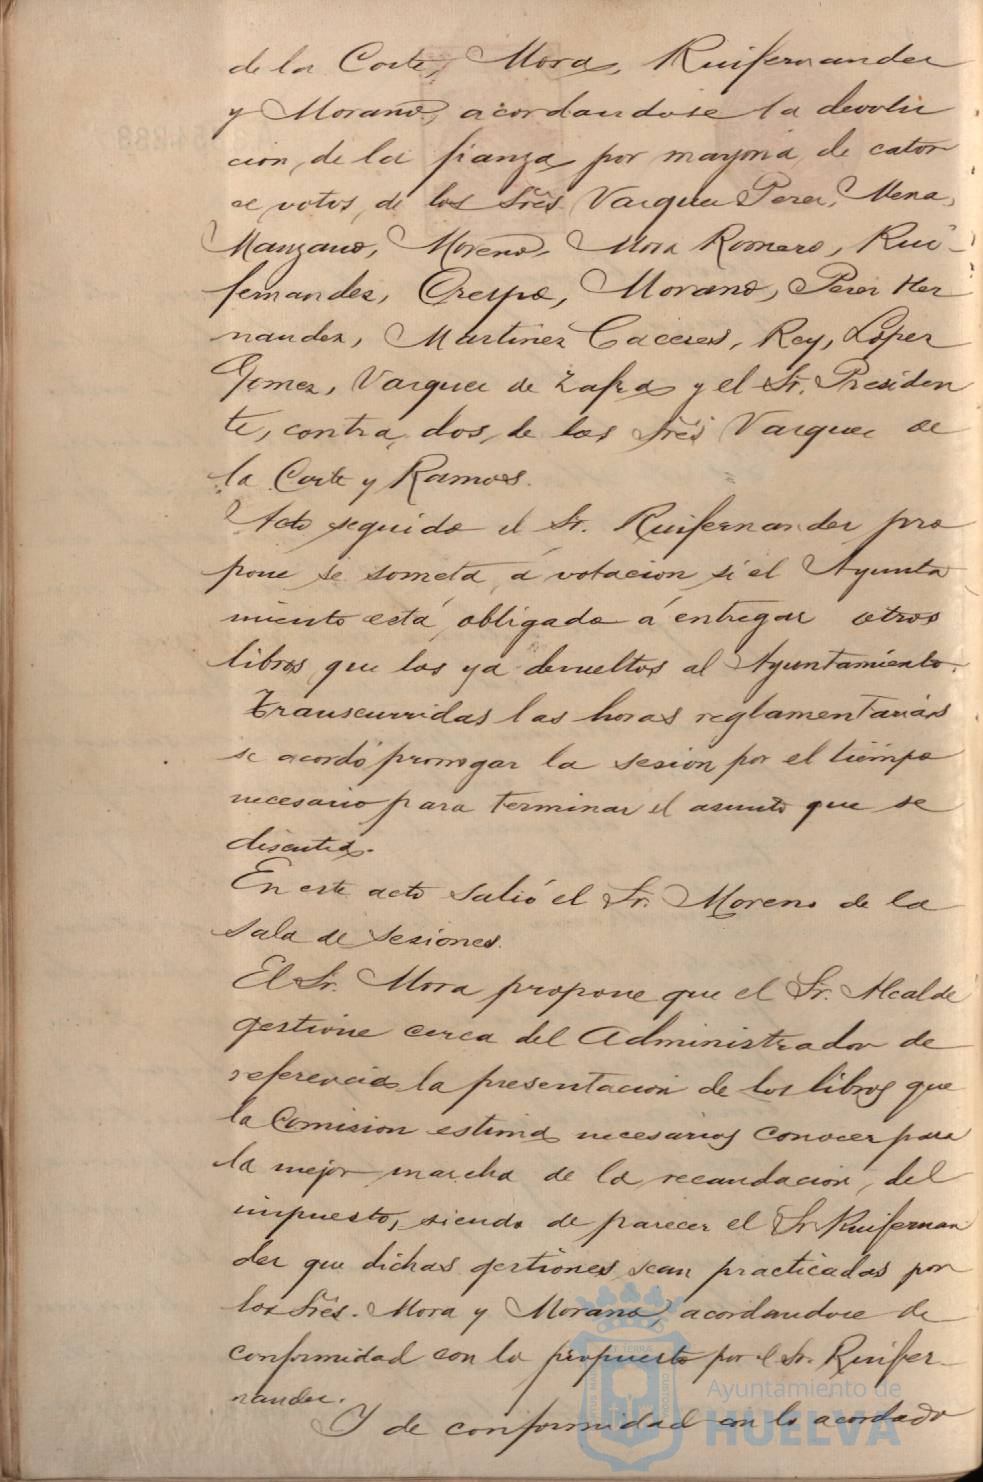 de la Corte, Mora, Ruifernandez
y Morano, acordandose la devolu
cion de la fianza por mayoria de cator
ce votos de los Sres Vazquez Perez, Mena,
Manzano, Moreno, Mora Romero, Rui-
fernandez, Crespo, Morano, Perez Her
nandez, Martinez Caceres, Rey, Lopez
Gomez, Vazquez de Zafra y el Sr. Presiden
te, contra dos, de los Sres Vazquez de
la Corte y Ramos.
Acto seguido el Sr. Ruifernandez pro
pone se someta á votacion si el Ayunta
miento está obligado á entregar otros
libros que los ya devueltos al Ayuntamiento.
Transcurridas las horas reglamentarias
se acordó prorrogar la sesion por el tiempo
necesario para terminar el asunto que se
discutia.
En este acto salió el Sr. Moreno de la
sala de sesiones.
El Sr. Mora propone que el Sr. Alcalde
gestione cerca del Administrador de
referencia la presentacion de los libros que
la Comision estima necesarios conocer para
la mejor marcha de la recaudacion del
impuesto, siendo de parecer el Sr. Ruifernan
dez que dichas gestiones sean practicadas por
los Sres. Mora y Morano, acordandose de
conformidad con lo propuesto por el Sr. Ruifer-
nandez.
Y de conformidad con lo acordado
Ayuntamiento de
HUELVA